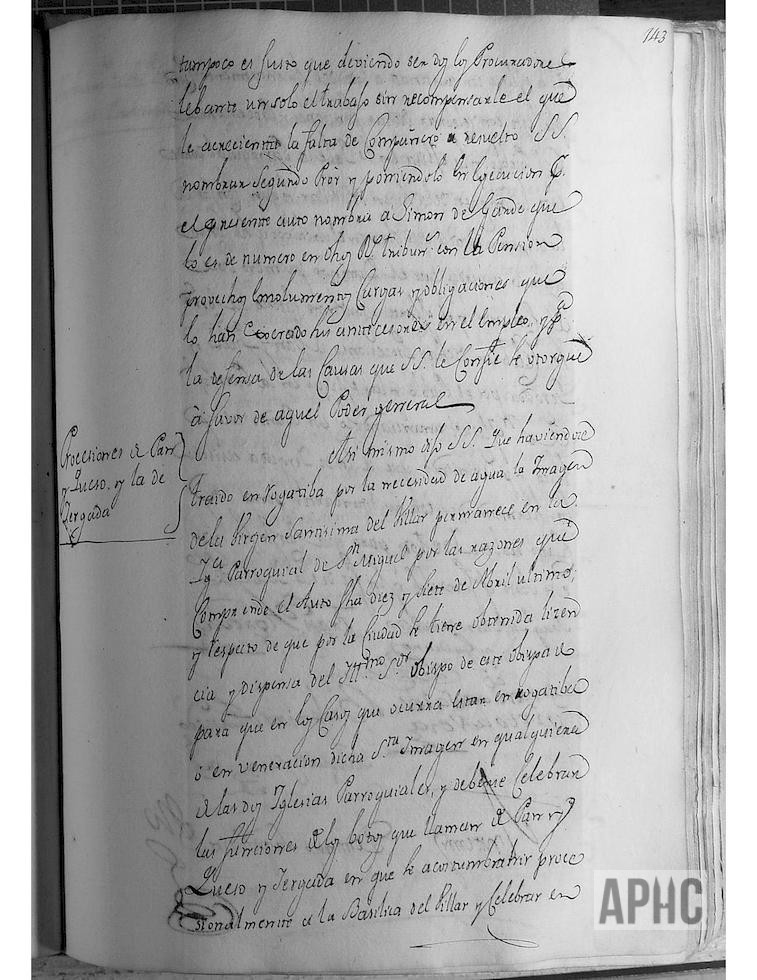 143
tampoco es justo que deviendo ser dos los Procuradores
lebante un solo el trabajo sin recompensarle el que
le acrecienta la falta de Compañero a resuelto SS.
nombrar Segundo Pror y poniendolo en Egecucion p.
el presente auto nombra a Simon de que
lo es de numero en dhos Rs. tribuns. con la Pension
provechos Emolumentos Cargas y obligaciones que
lo han exercido sus antecesores en el Empleo, y pa
la defensa de las Causas que SS. le Confie le otorgue
à favor de aquel Poder general
Asi mismo dijo SS. Que haviendose
Procesiones de Pan
y Queso, y la de
Jergada
traido en rogatiba por la necesidad de agua la Imagen
de la Virgen Santisima del Pillar permanece en la
Iga Parroquial de Sn Miguel por las razones que
Comprende el Auto fha diez y siete de Abril ultimo;
y respecto de que por la Ciudad se tiene obtenida licen
cia y dispensa del Illmo Sor obispo de este obispado
para que en los Casos que ocurra estar en rogatiba
ò en veneracion dicha Sta Imagen en qualquiera
de las dos Iglesias Parroquiales, y deberse Celebrar
las funciones de los botos que llaman de Pan y
Queso y Jergada en que se acostumbra hir proce
sionalmente a la Basilica del Pillar y Celebrar en
APHC